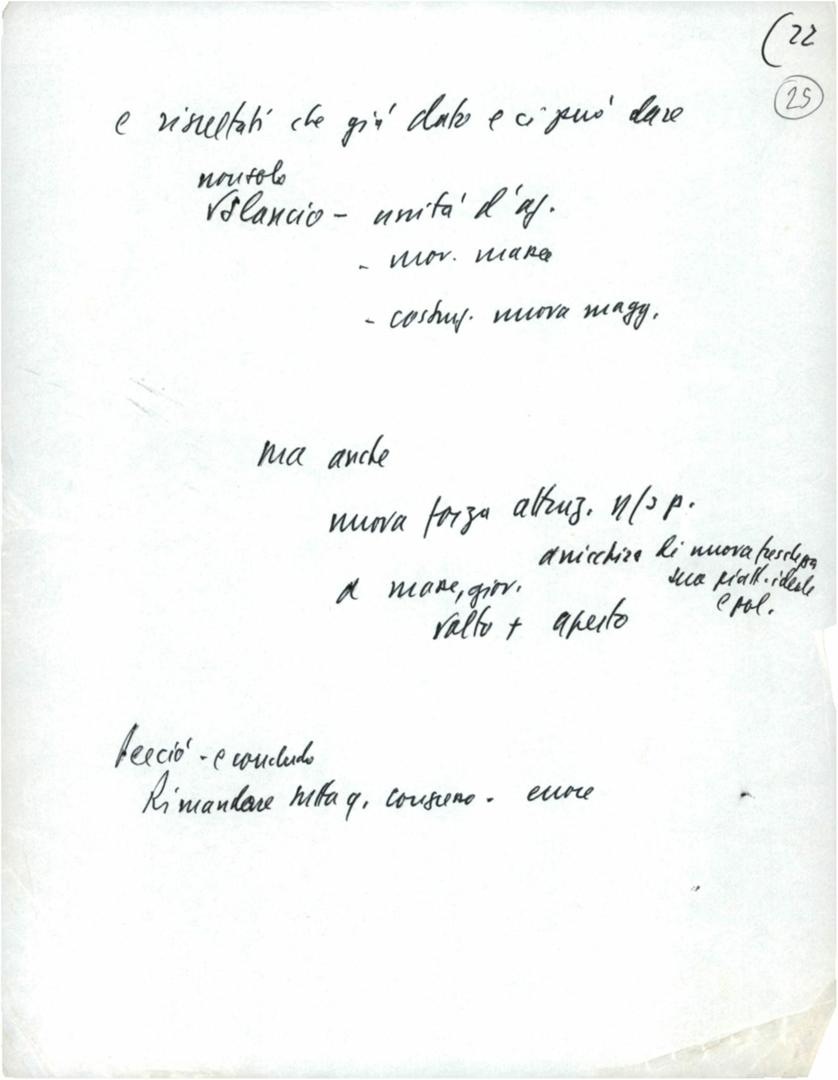 (22
25
e risultati che già dato e ci può dare
non solo
rilancio - unità d'az.
- mov. masse
- costruz. nuova magg.
ma anche
nuova forza attraz. n/s p.
arricchire di nuova freschezza
sua piatt. ideale
e pol.
a masse, giov.
volto + aperto
Perciò - e concludo
Rimandare tutta q. congresso - errore